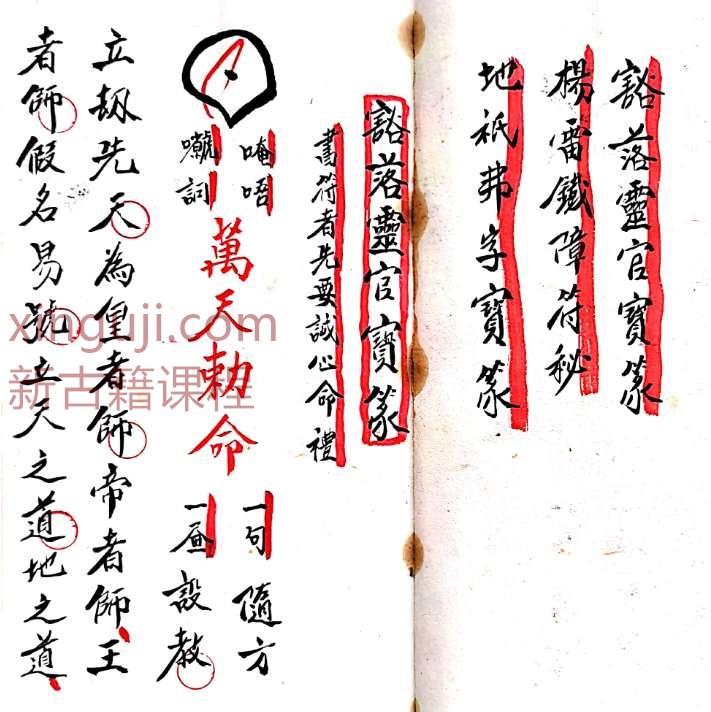 豁落靈官寶篆
楊雷鐵障符秘
地祇弗字寶篆
豁落靈官寶篆
書符者先要誠心命禮
唵唔
詞
萬天勅命
一句隨方
設教
立劫先天為皇者師帝者師王
者師假名易號立天之道地之道
xinguji.com
新古籍课程